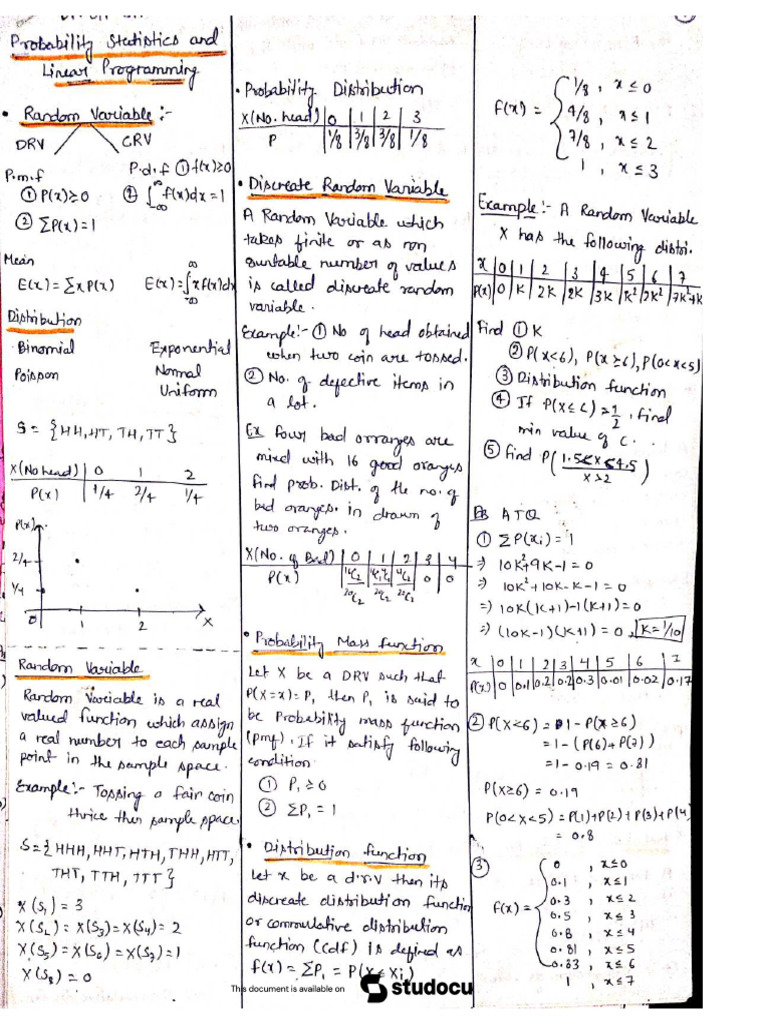 Probability Statistics and
Linear Programming
• Random Variable :-
DRV CRV
P.m.f
① P(x)≥0
② ΣP(x)=1
P.d.f ① f(x)≥0
② ∫_{-∞}^{∞} f(x)dx = 1
Mean
E(x) = Σx P(x) E(x) = ∫_{-∞}^{∞} x f(x) dx
Distribution
Binomial Exponential
Poisson Normal
Uniform
S = {HH, HT, TH, TT}
X(No head) | 0 1 2
P(x) | 1/4 2/4 1/4
P(x)
2/4
1/4
0 1 2 X
Random Variable
Random Variable is a real
valued function which assign
a real number to each sample
point in the sample space.
Example:- Tossing a fair coin
thrice then sample space
S = {HHH, HHT, HTH, THH, HTT,
THT, TTH, TTT}
X(S₁) = 3
X(S₂) = X(S₃) = X(S₄) = 2
X(S₅) = X(S₆) = X(S₇) = 1
X(S₈) = 0
• Probability Distribution
X(No. head) | 0 | 1 | 2 | 3
P | 1/8 | 3/8 | 3/8 | 1/8
• Discreate Random Variable
A Random Variable which
takes finite or as non
countable number of values
is called discreate random
variable.
Example:- ① No of head obtained
when two coin are tossed.
② No. of defective items in
a lot.
Ex four bad orranges are
mixed with 16 good oranges
find prob. Dist. of the no. of
bad oranges. in drawn of
two oranges.
X(No. of Bad) | 0 | 1 | 2 | 3 | 4
P(x) | 0 | 0
• Probability Mass function
Let X be a DRV such that
P(X=x) = P, then P, is said to
be Probability mass function
(pmf). If it satisfy following
condition
① P₁ ≥ 0
② ΣP₁ = 1
• Distribution function
Let X be a d.r.v then its
discreate distribution function
or commulative distribution
function (cdf) is defined as
f(x) = ΣP₁ = P(X≤xᵢ)
f(x) = { 1/8, x ≤ 0
4/8, x ≤ 1
7/8, x ≤ 2
1, x ≤ 3
Example:- A Random Variable
X has the following distri.
x | 0 | 1 | 2 | 3 | 4 | 5 | 6 | 7
P(x) | 0 | K | 2K | 2K | 3K | K² | 2K² | 7K²+K
Find ① K
② P(x<6), P(x≥6), P(0<x<5)
③ Distribution function
④ If P(X≤C) = 1/2, find
min value of c.
⑤ find P(1.5<X<4.5 / X>2)
ATQ
① ΣP(xᵢ) = 1
⇒ 10K²+9K-1=0
⇒ 10K²+10K-K-1=0
⇒ 10K(K+1)-1(K+1)=0
⇒ (10K-1)(K+1)=0, K=1/10
x | 0 | 1 | 2 | 3 | 4 | 5 | 6 | 7
P(x) | 0 | 0.1 | 0.2 | 0.2 | 0.3 | 0.01 | 0.02 | 0.17
② P(X<6) = 1-P(X≥6)
= 1-(P(6)+P(7))
= 1-0.19 = 0.81
P(X≥6) = 0.19
P(0<X<5) = P(1)+P(2)+P(3)+P(4
= 0.8
③ f(x) = { 0, x≤0
0.1, x≤1
0.3, x≤2
0.5, x≤3
0.8, x≤4
0.81, x≤5
0.83, x≤6
1, x≤7
This document is available on studocu